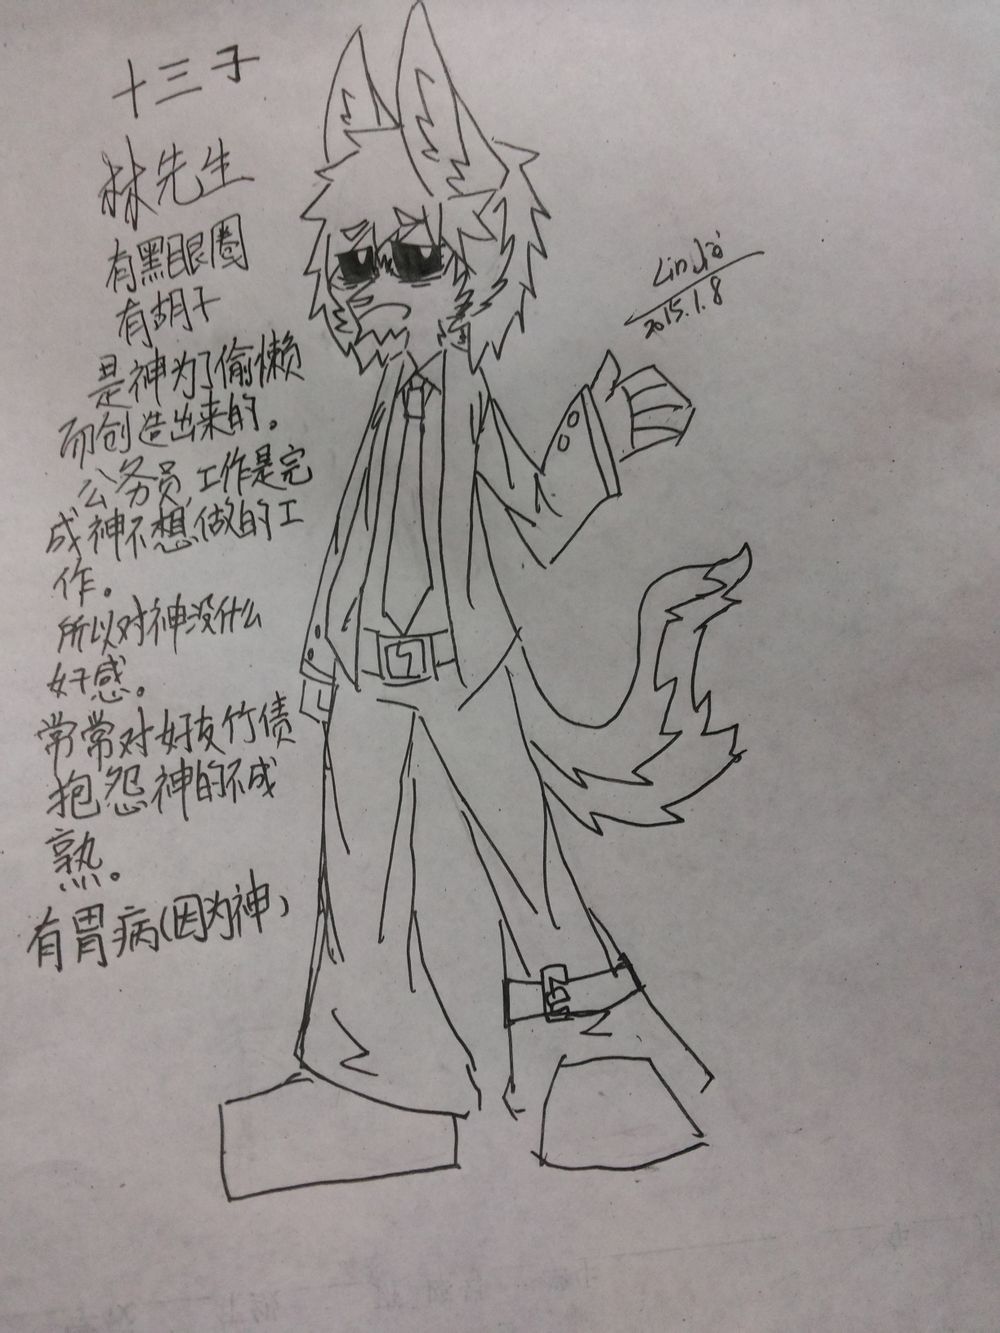 十三子
林先生
有黑眼圈
有胡子
是神为了偷懒
而创造出来的。
公务员,工作是完
成神不想做的工
作。
所以对神没什么
好感。
常常对好友竹债
抱怨神的不成
熟。
有胃病(因为神)
2015.1.8